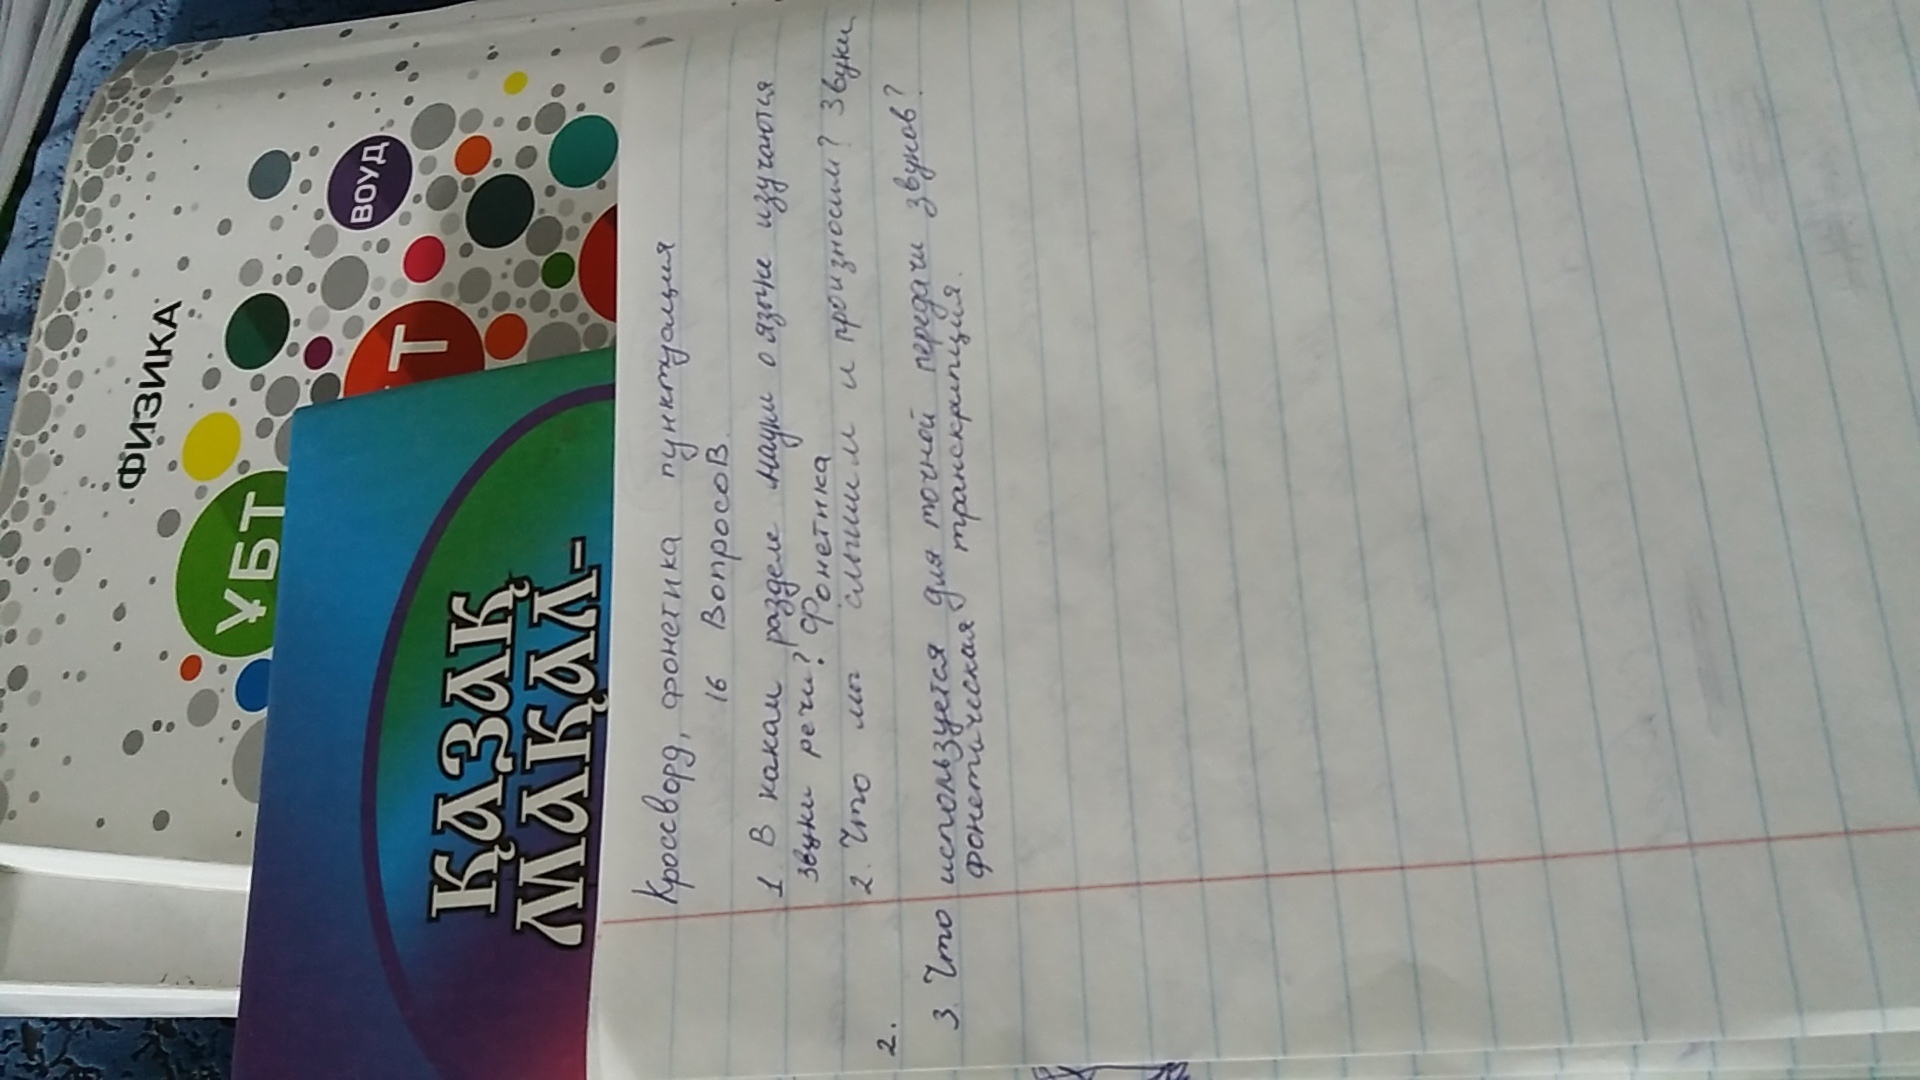 ФИЗИКА
ҰБТ
Т
ВОУД
ҚАЗАҚ
МАҚАЛ-
Кроссворд, фонетика пунктуация
16 Вопросов.
1. В каком разделе науки о языке изучаются
звуки речи? Фонетика
2. Что мы слышим и произносим? Звуки
2.
3. Что используется для точной передачи звуков?
фонетическая транскрипция.